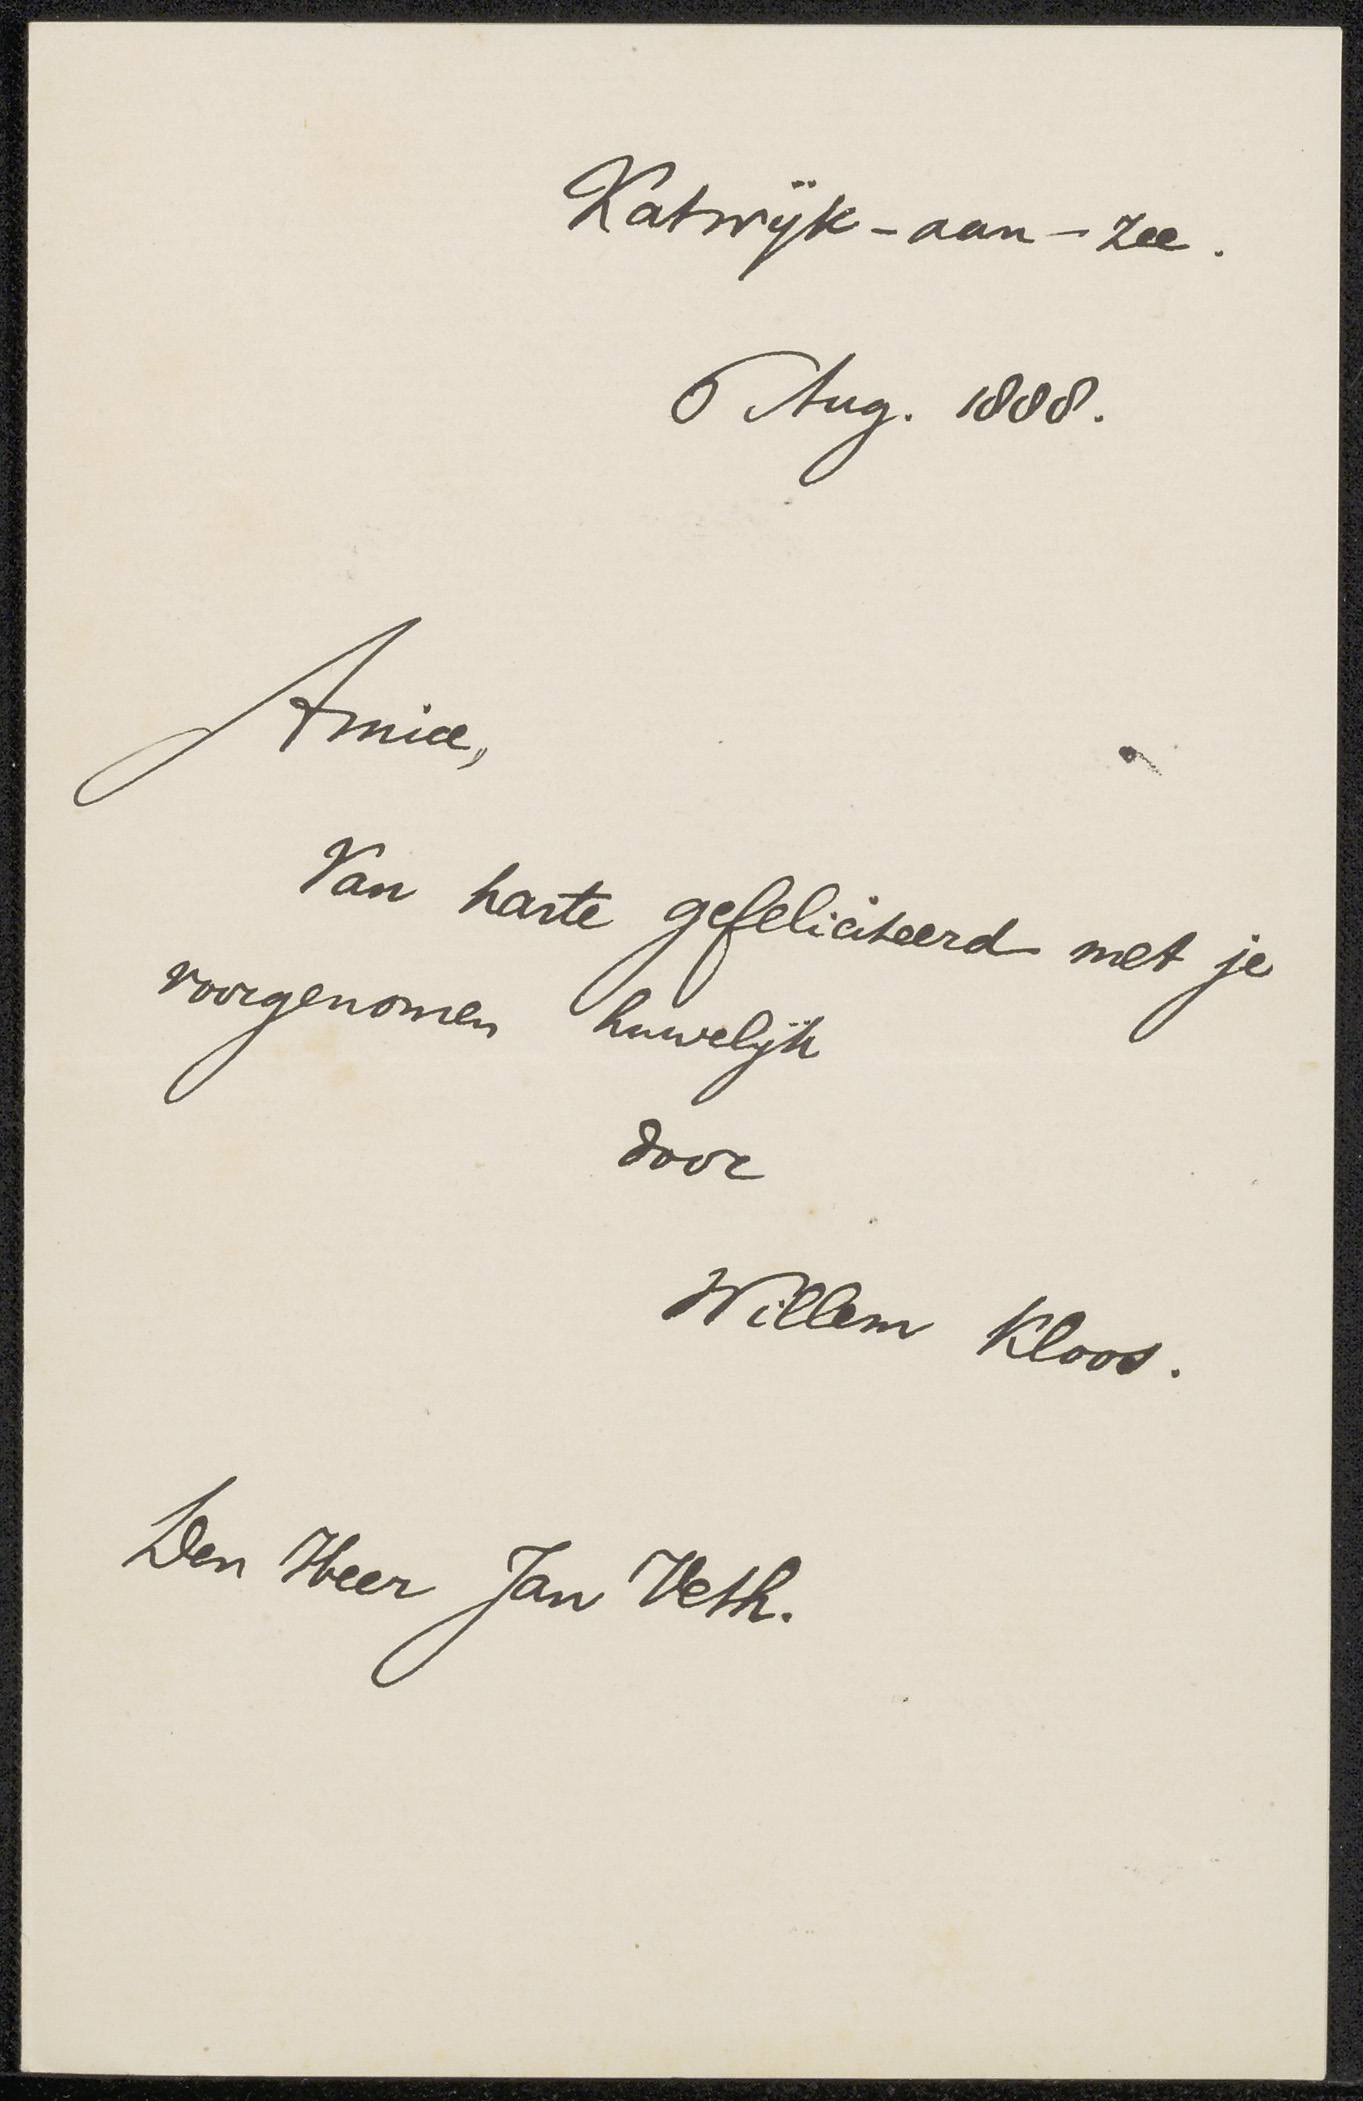 Katwijk-aan-zee.
6 Aug. 1888.
Amice,
Van harte gefeliciteerd met je
voorgenomen huwelijk
door
Willem Kloos.
Den Heer Jan Veth.